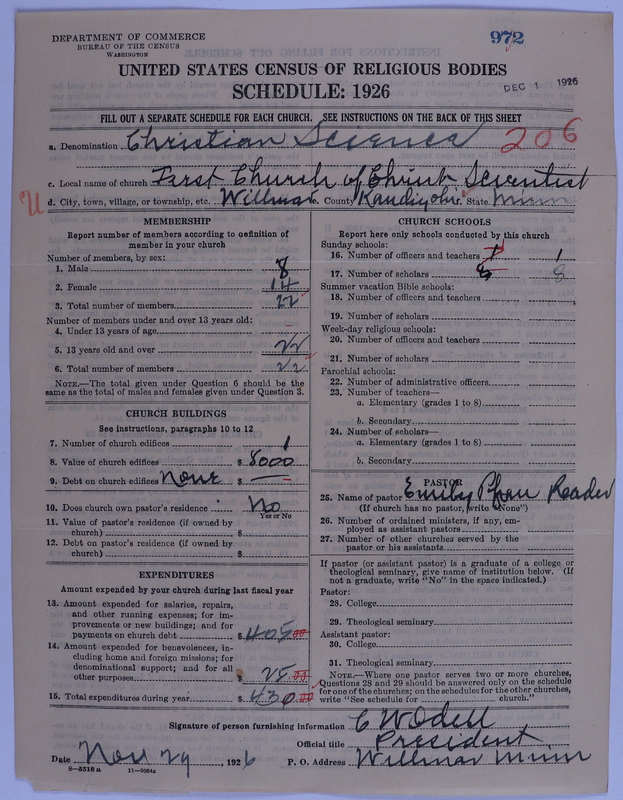 DEPARTMENT OF COMMERCE
BUREAU OF THE CENSUS
WASHINGTON
972
UNITED STATES CENSUS OF RELIGIOUS BODIES
SCHEDULE: 1926
DEC 1 1926
FILL OUT A SEPARATE SCHEDULE FOR EACH CHURCH. SEE INSTRUCTIONS ON THE BACK OF THIS SHEET
a. Denomination Christian Science 206
c. Local name of church First Church of Christ Scientist
d. City, town, village, or township, etc. Willmar County Kandiyohi State Minn
MEMBERSHIP
Report number of members according to definition of
member in your church
Number of members, by sex:
1. Male 8
2. Female 14
3. Total number of members 22
Number of members under and over 13 years old:
4. Under 13 years of age
5. 13 years old and over 22
6. Total number of members 22
NOTE.—The total given under Question 6 should be the
same as the total of males and females given under Question 3.
CHURCH BUILDINGS
See instructions, paragraphs 10 to 12
7. Number of church edifices 1
8. Value of church edifices $ 8000
9. Debt on church edifices None $ —
10. Does church own pastor's residence No
Yes or No
11. Value of pastor's residence (if owned by
church) $
12. Debt on pastor's residence (if owned by
church) $
EXPENDITURES
Amount expended by your church during last fiscal year
13. Amount expended for salaries, repairs,
and other running expenses; for im-
provements or new buildings; and for
payments on church debt $ 405 00
14. Amount expended for benevolences, in-
cluding home and foreign missions; for
denominational support; and for all
other purposes $ 25 00
15. Total expenditures during year $ 430 00
CHURCH SCHOOLS
Report here only schools conducted by this church
Sunday schools:
16. Number of officers and teachers 1 1
17. Number of scholars 8 8
Summer vacation Bible schools:
18. Number of officers and teachers
19. Number of scholars
Week-day religious schools:
20. Number of officers and teachers
21. Number of scholars
Parochial schools:
22. Number of administrative officers
23. Number of teachers—
a. Elementary (grades 1 to 8)
b. Secondary
24. Number of scholars—
a. Elementary (grades 1 to 8)
b. Secondary
PASTOR
25. Name of pastor Emily Pfau Reader
(If church has no pastor, write "None")
26. Number of ordained ministers, if any, em-
ployed as assistant pastors
27. Number of other churches served by the
pastor or his assistants
If pastor (or assistant pastor) is a graduate of a college or
theological seminary, give name of institution below. (If
not a graduate, write "No" in the space indicated.)
Pastor:
28. College
29. Theological seminary
Assistant pastor:
30. College
31. Theological seminary
NOTE.—Where one pastor serves two or more churches,
Questions 28 and 29 should be answered only on the schedule
for one of the churches; on the schedules for the other churches,
write "See schedule for church."
Signature of person furnishing information C W Odell
Official title President
Date Nov 29, 1926 P. O. Address Willmar Minn
8—5518a 11—9054c